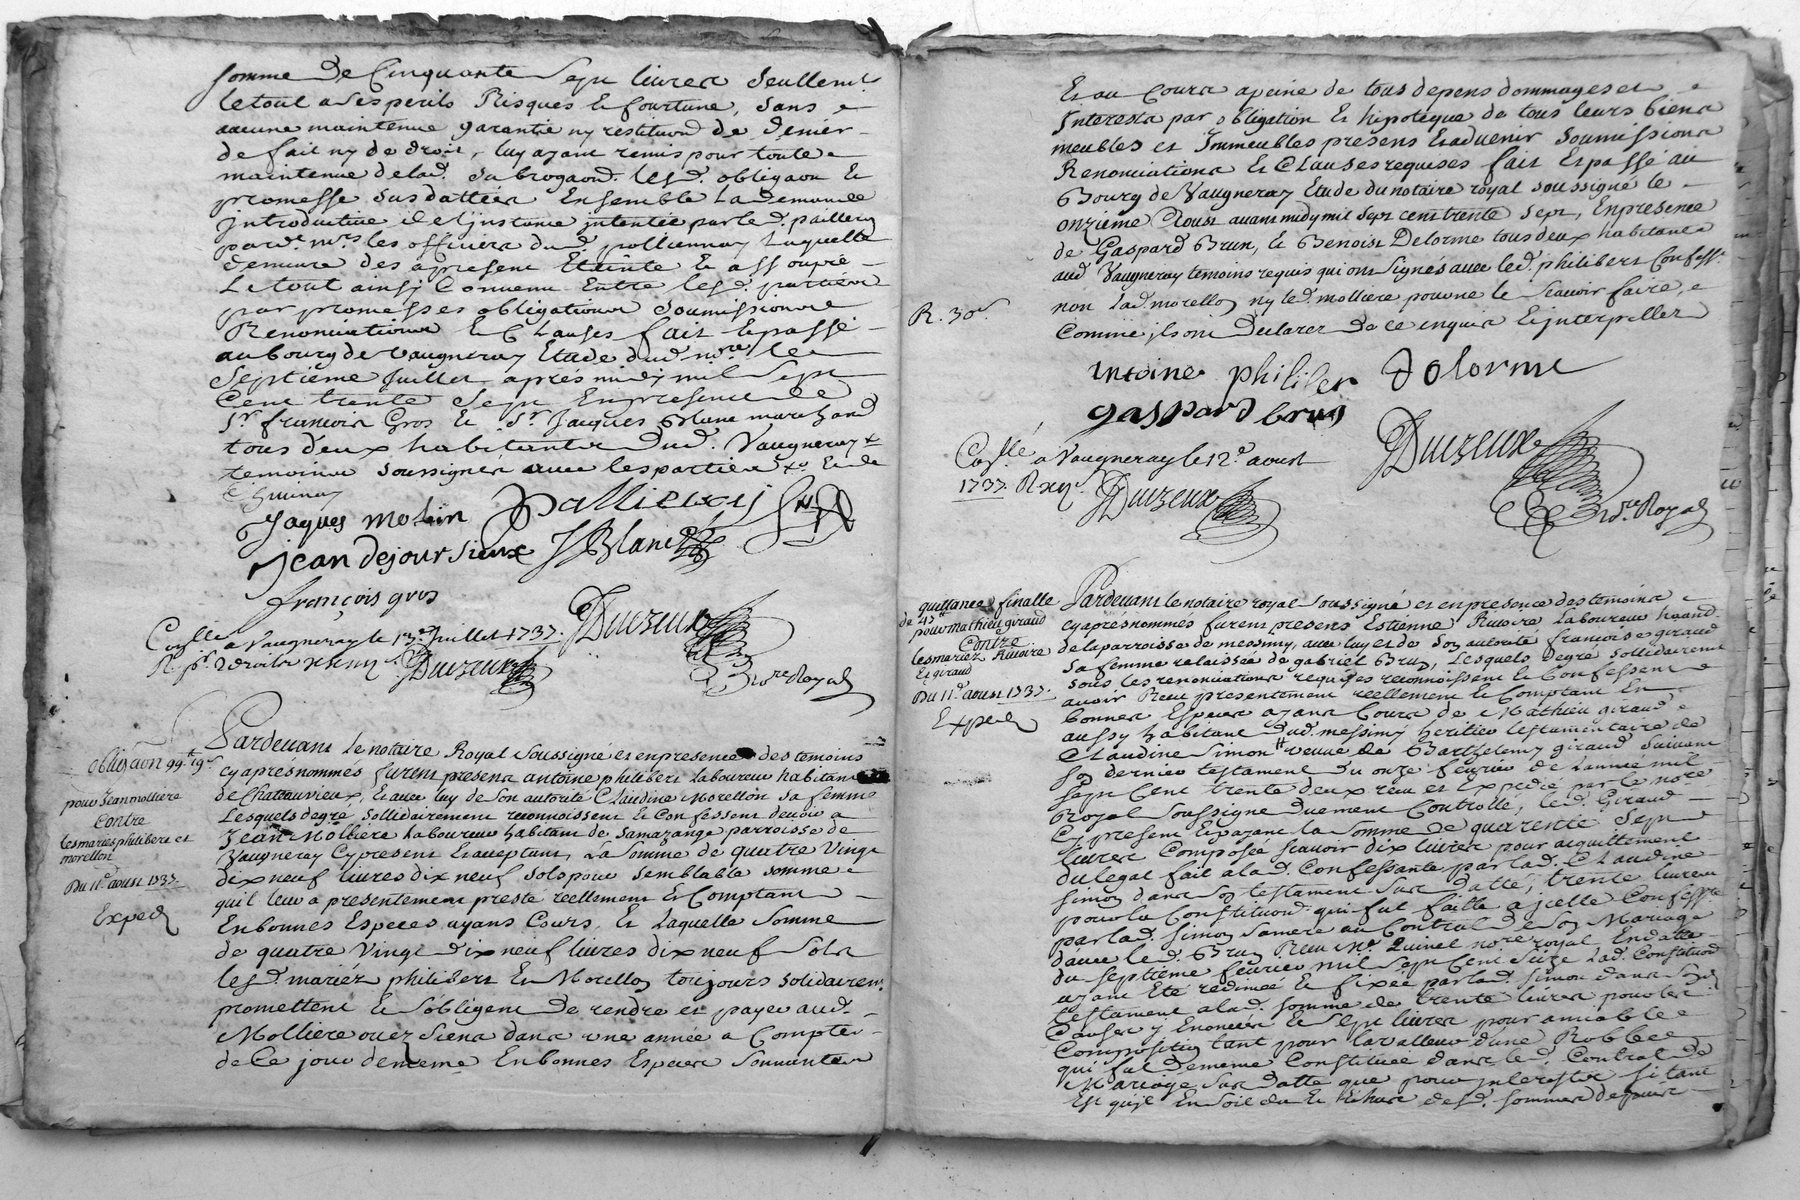 somme de Cinquante Sept livres Seullemt
le tout a Ses perils Risques et fourtune, Sans
aucune maintenue garantie ny restitution de denier
de fait ny de droit, luy ayant remis pour toute
maintenue de lad. Subrogaon. lesd. obligaon et
promesse Sus dattées Ensemble La demande
introductive et instance intentée par led. paillery
par
les officiers dud. pollionnay Laquelle
demeure des apresent Eteinte et assoupie
Le tout ainsy Convenu Entre lesd. parties
par promesses obligations Soumissions
Renonciations et Clauses fait et passé
au bourg de Vaugneray Etude dud. nore le
Septième Juillet après midy mil Sept
Cent trente Sept En presence de
Sr. francois Gros et Sr. Jacques Blanc marchand
tous deux habitants dud. Vaugneray
temoins Soussignés avec les parties
Jaques molin
jean dejoursieux J Blanc
françois gros
Duizeux
Conllé a Vaugneray le 13e Juillet 1737.
Duizeux
nore Royal
obligaon 99lt 19s
pour Jean molliere
Contre
les mariés philibert et
morellon
Du 11e. aoust 1737.
Exped
Pardevant le notaire Royal Soussigné et en presence des temoins
cy après nommés furent presens antoine philibert Laboureur habitant
de Chateauvieux, et avec luy de Son autorité Claudine Morellon Sa femme
Lesquels de gré Sollidairement reconnoissent et Confessent devoir a
Jean Molliere Laboureur habitant de Samazange parroisse de
Vaugneray Cy present et acceptant, La Somme de quatre Vingt
dix neuf livres dix neuf Sols pour Semblable Somme
qu'il leur a presentement presté réellement et Comptant
En bonnes Especes ayans Cours, Et Laquelle Somme
de quatre Vingt dix neuf livres dix neuf Sols
lesd. mariéz philibert Et Morellon toujours Solidairemt
promettent et S'obligent de rendre et payer aud.
Molliere ou ez Siens dans une année a Compter
de Ce jour de meme En bonnes Especes Sonnantes
Et au Cours a peine de tous depens dommages et
Interests par obligation et hipoteque de tous leurs biens
meubles et Immeubles presens et advenir Soumissions
Renonciations et Clauses requises fait et passé au
Bourg de Vaugneray Etude du notaire royal soussigné le
onzieme aoust avant midy mil Sept cent trente Sept, En presence
de Gaspard Brun, et Benoist Delorme tous deux habitants
aud Vaugneray temoins requis qui ont Signés avec led. philibert Confesst
non lad. morellon ny led. molliere pour ne le Scavoir faire,
Comme ils ont Declarer de ce enquis et interpeller
R. 30s.
antoine philiber Delorme
gaspard brun
Duizeux
Conllé a Vaugneray le 12e aoust
1737.
Duizeux
nore Royal
quittance finalle
de 47lt
pour mathieu giraud
Contre
les mariez Rivoire
Et giraud
Du 11e. aoust 1737.
Exped
Pardevant le notaire royal Soussigné et en presence des temoins
cy apres nommés furent presens Estienne Rivoire Laboureur
de la parroisse de messimy, avec luy et de Son autorité francoise giraud
Sa femme relaissée de gabriel Brun, Lesquels de gré Sollidairement
Sous les renonciations requises reconnoissent et Confessent
avoir Receu presentement reellement et Comptant En
bonnes Especes ayans Cours de Mathieu giraud
aussy habitant dud. messimy heritier testamentaire de
Claudine Simon veuve de Barthelemy giraud Suivant
Son dernier testament du onze fevrier de L'année mil
Sept Cent trente deux receu et Expedié par le nore
Royal Soussigné duement Controllé, led. Giraud
Cy present Et payant la Somme de quarente Sept
livres Composée Scavoir dix livres pour acquittement
du legat fait a lad. Confessante par lad. Claudine
Simon dans Son testament Sus datté, trente livres
pour la Constitution qui fut faitte a jcelle Confesste
par lad. Simon Sa mere au Contrat de Son Mariage
avec led. Brun Receu Me. Quinet nore royal En datte
du Septieme fevrier mil Sept Cent Seize lad. Constitution
ayant Eté redimée et fixée par lad. Simon dans Sond.
testament a lad. Somme de trente livres pour les
Causes y Enoncées et Sept livres pour amiable
Composition tant pour la valleur d'une Robbe
qui fut de meme Constituée dans led. Contrat de
Mariage Sus datté que pour interests Si tant
Est qu'il En Soit du Et Echus desd. Sommes depuis